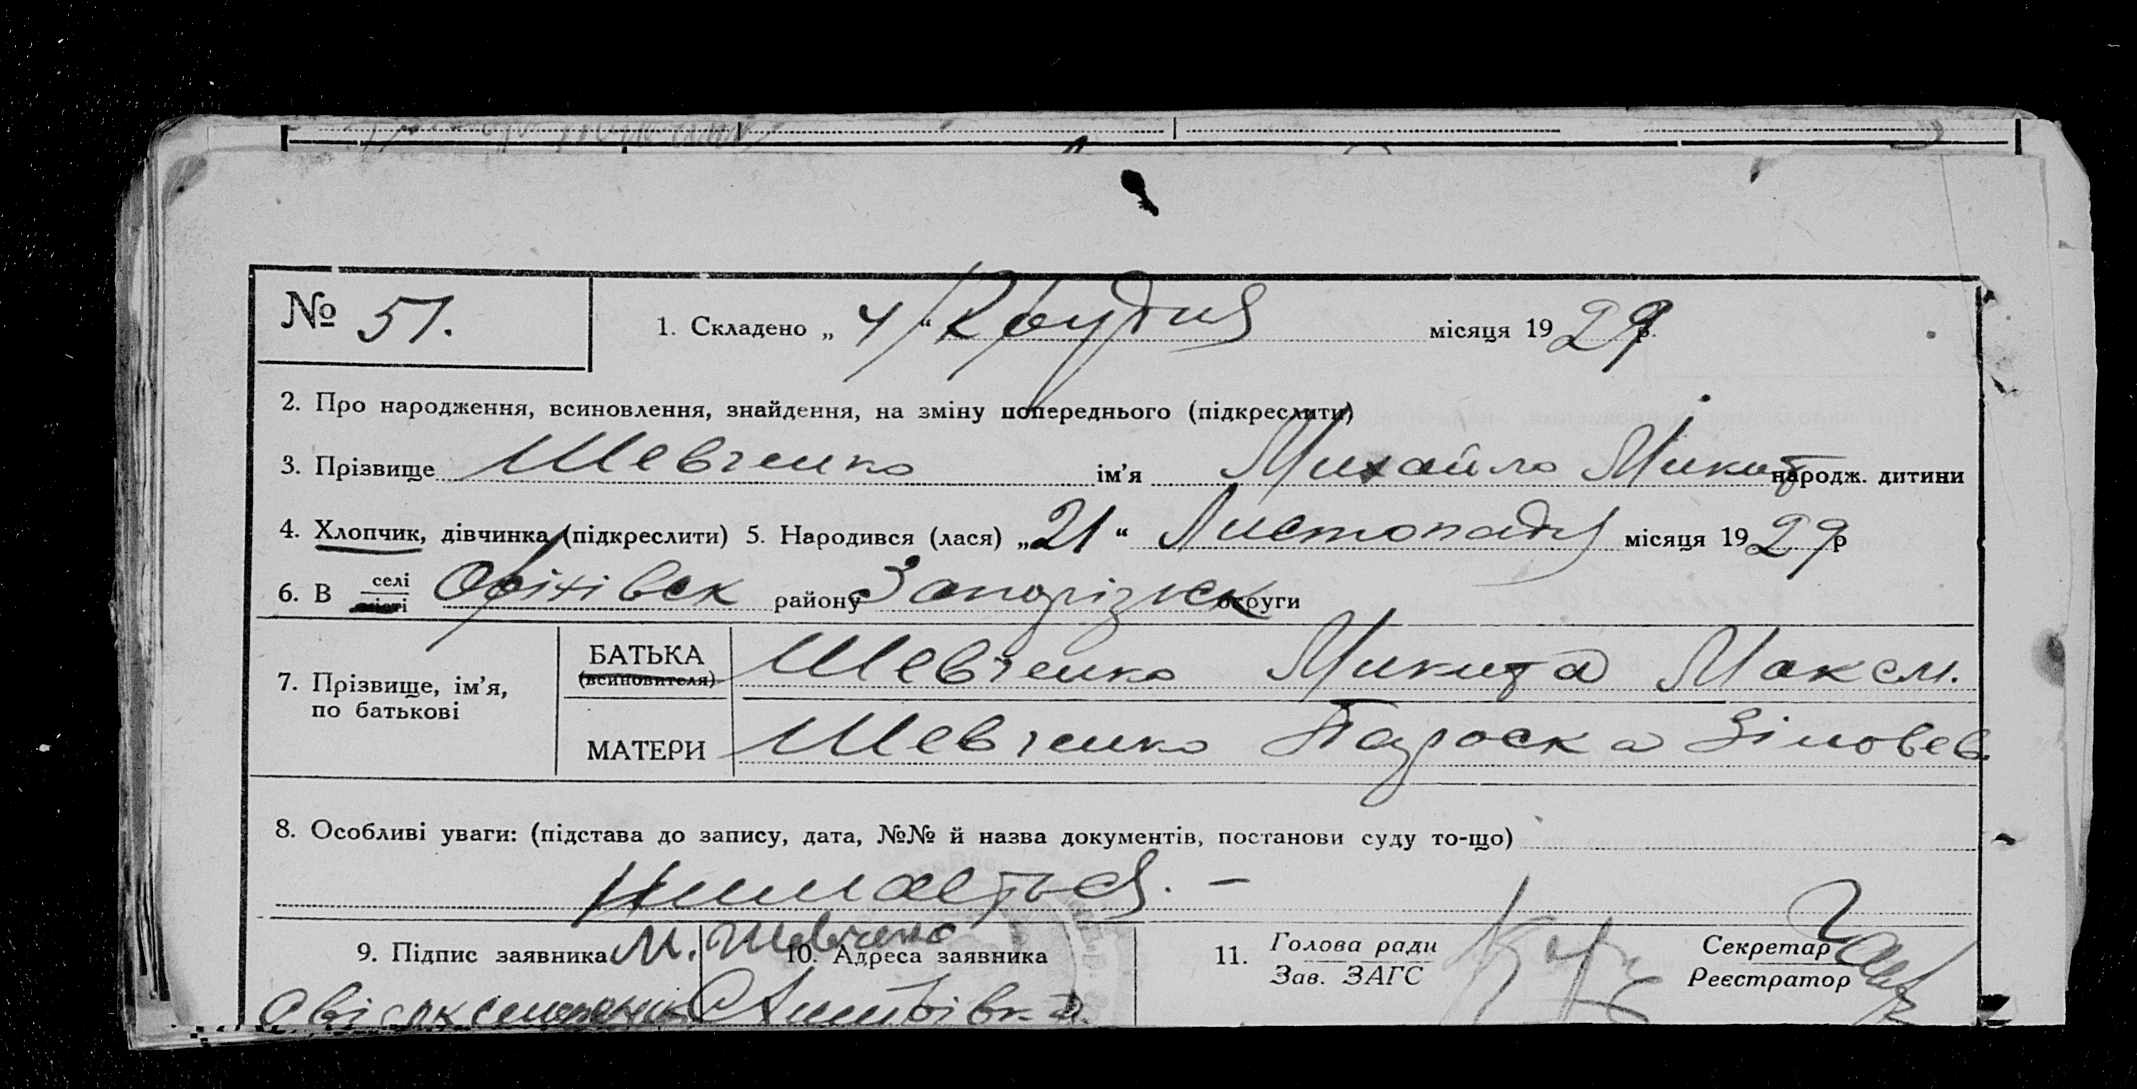 № 51. 1. Складено „ 4 “ Грудня місяця 1929 р.
2. Про народження, всиновлення, знайдення, на зміну попереднього (підкреслити)
3. Прізвище Шевченко ім’я Михайло Микит народж. дитини
4. Хлопчик, дівчинка (підкреслити) 5. Народився (лася) „21“ Листопада місяця 1929 р
6. В селі Оріхівск району Запорізьк округи
7. Прізвище, ім’я, по батькові
БАТЬКА (всиновителя) Шевченко Микита Максм.
МАТЕРИ Шевченко Параска Зіновев.
8. Особливі уваги: (підстава до запису, дата, №№ й назва документів, постанови суду то-що)
Нимаеться. –
9. Підпис заявника М. Шевченко 10. Адреса заявника
11. Голова ради
Зав. ЗАГС
Секретар
Реєстратор